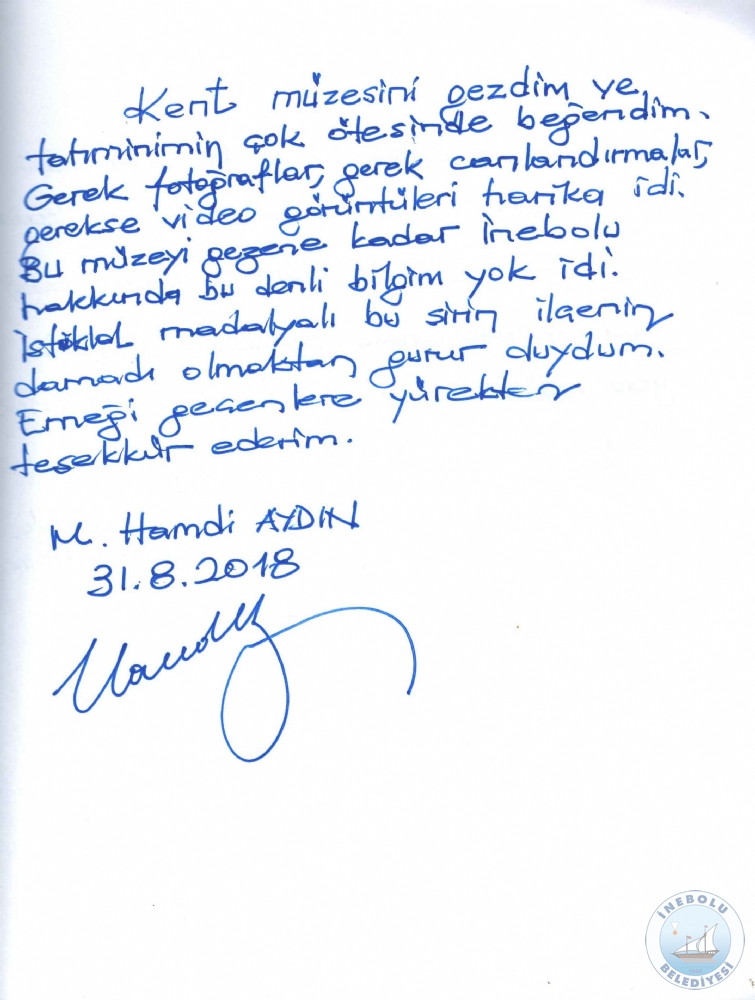 Kent müzesini gezdim ve
tahminimin çok ötesinde beğendim.
Gerek fotoğraflar, gerek canlandırmalar,
gerekse video görüntüleri harika idi.
Bu müzeyi gezene kadar İnebolu
hakkında bu denli bilgim yok idi.
İstiklal madalyalı bu şirin ilçenin
damadı olmaktan gurur duydum.
Emeği geçenlere yürekten
teşekkür ederim.
M. Hamdi AYDIN
31.8.2018
İNEBOLU
BELEDİYESİ